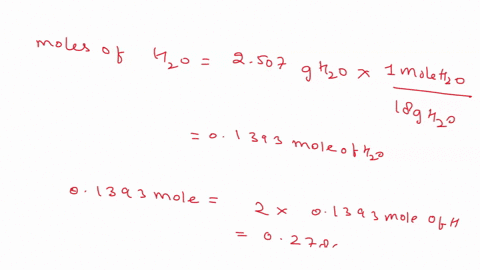 moles of H2O = 2.507 g H2O × 1 mole H2O / 18 g H2O
= 0.1393 mole of H2O
0.1393 mole = 2 × 0.1393 mole of H
= 0.278